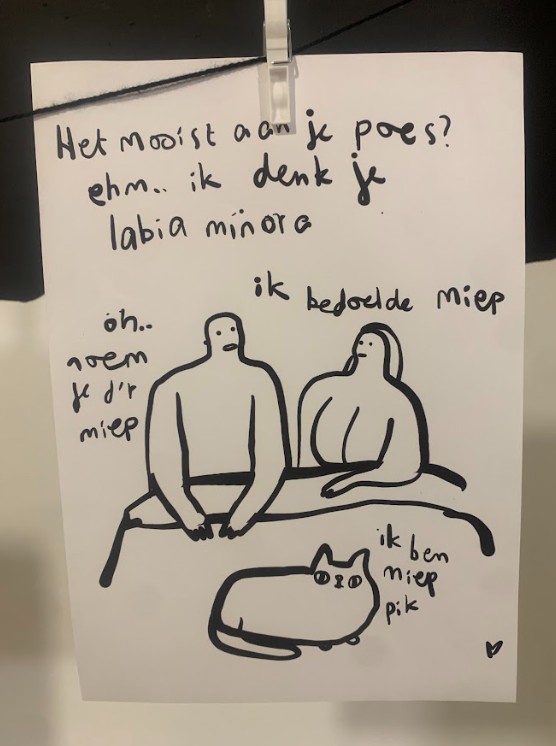 Het mooist aan je poes?
ehm.. ik denk je
labia minora
ik bedoelde miep
oh..
noem
je d'r
miep
ik ben
miep
pik